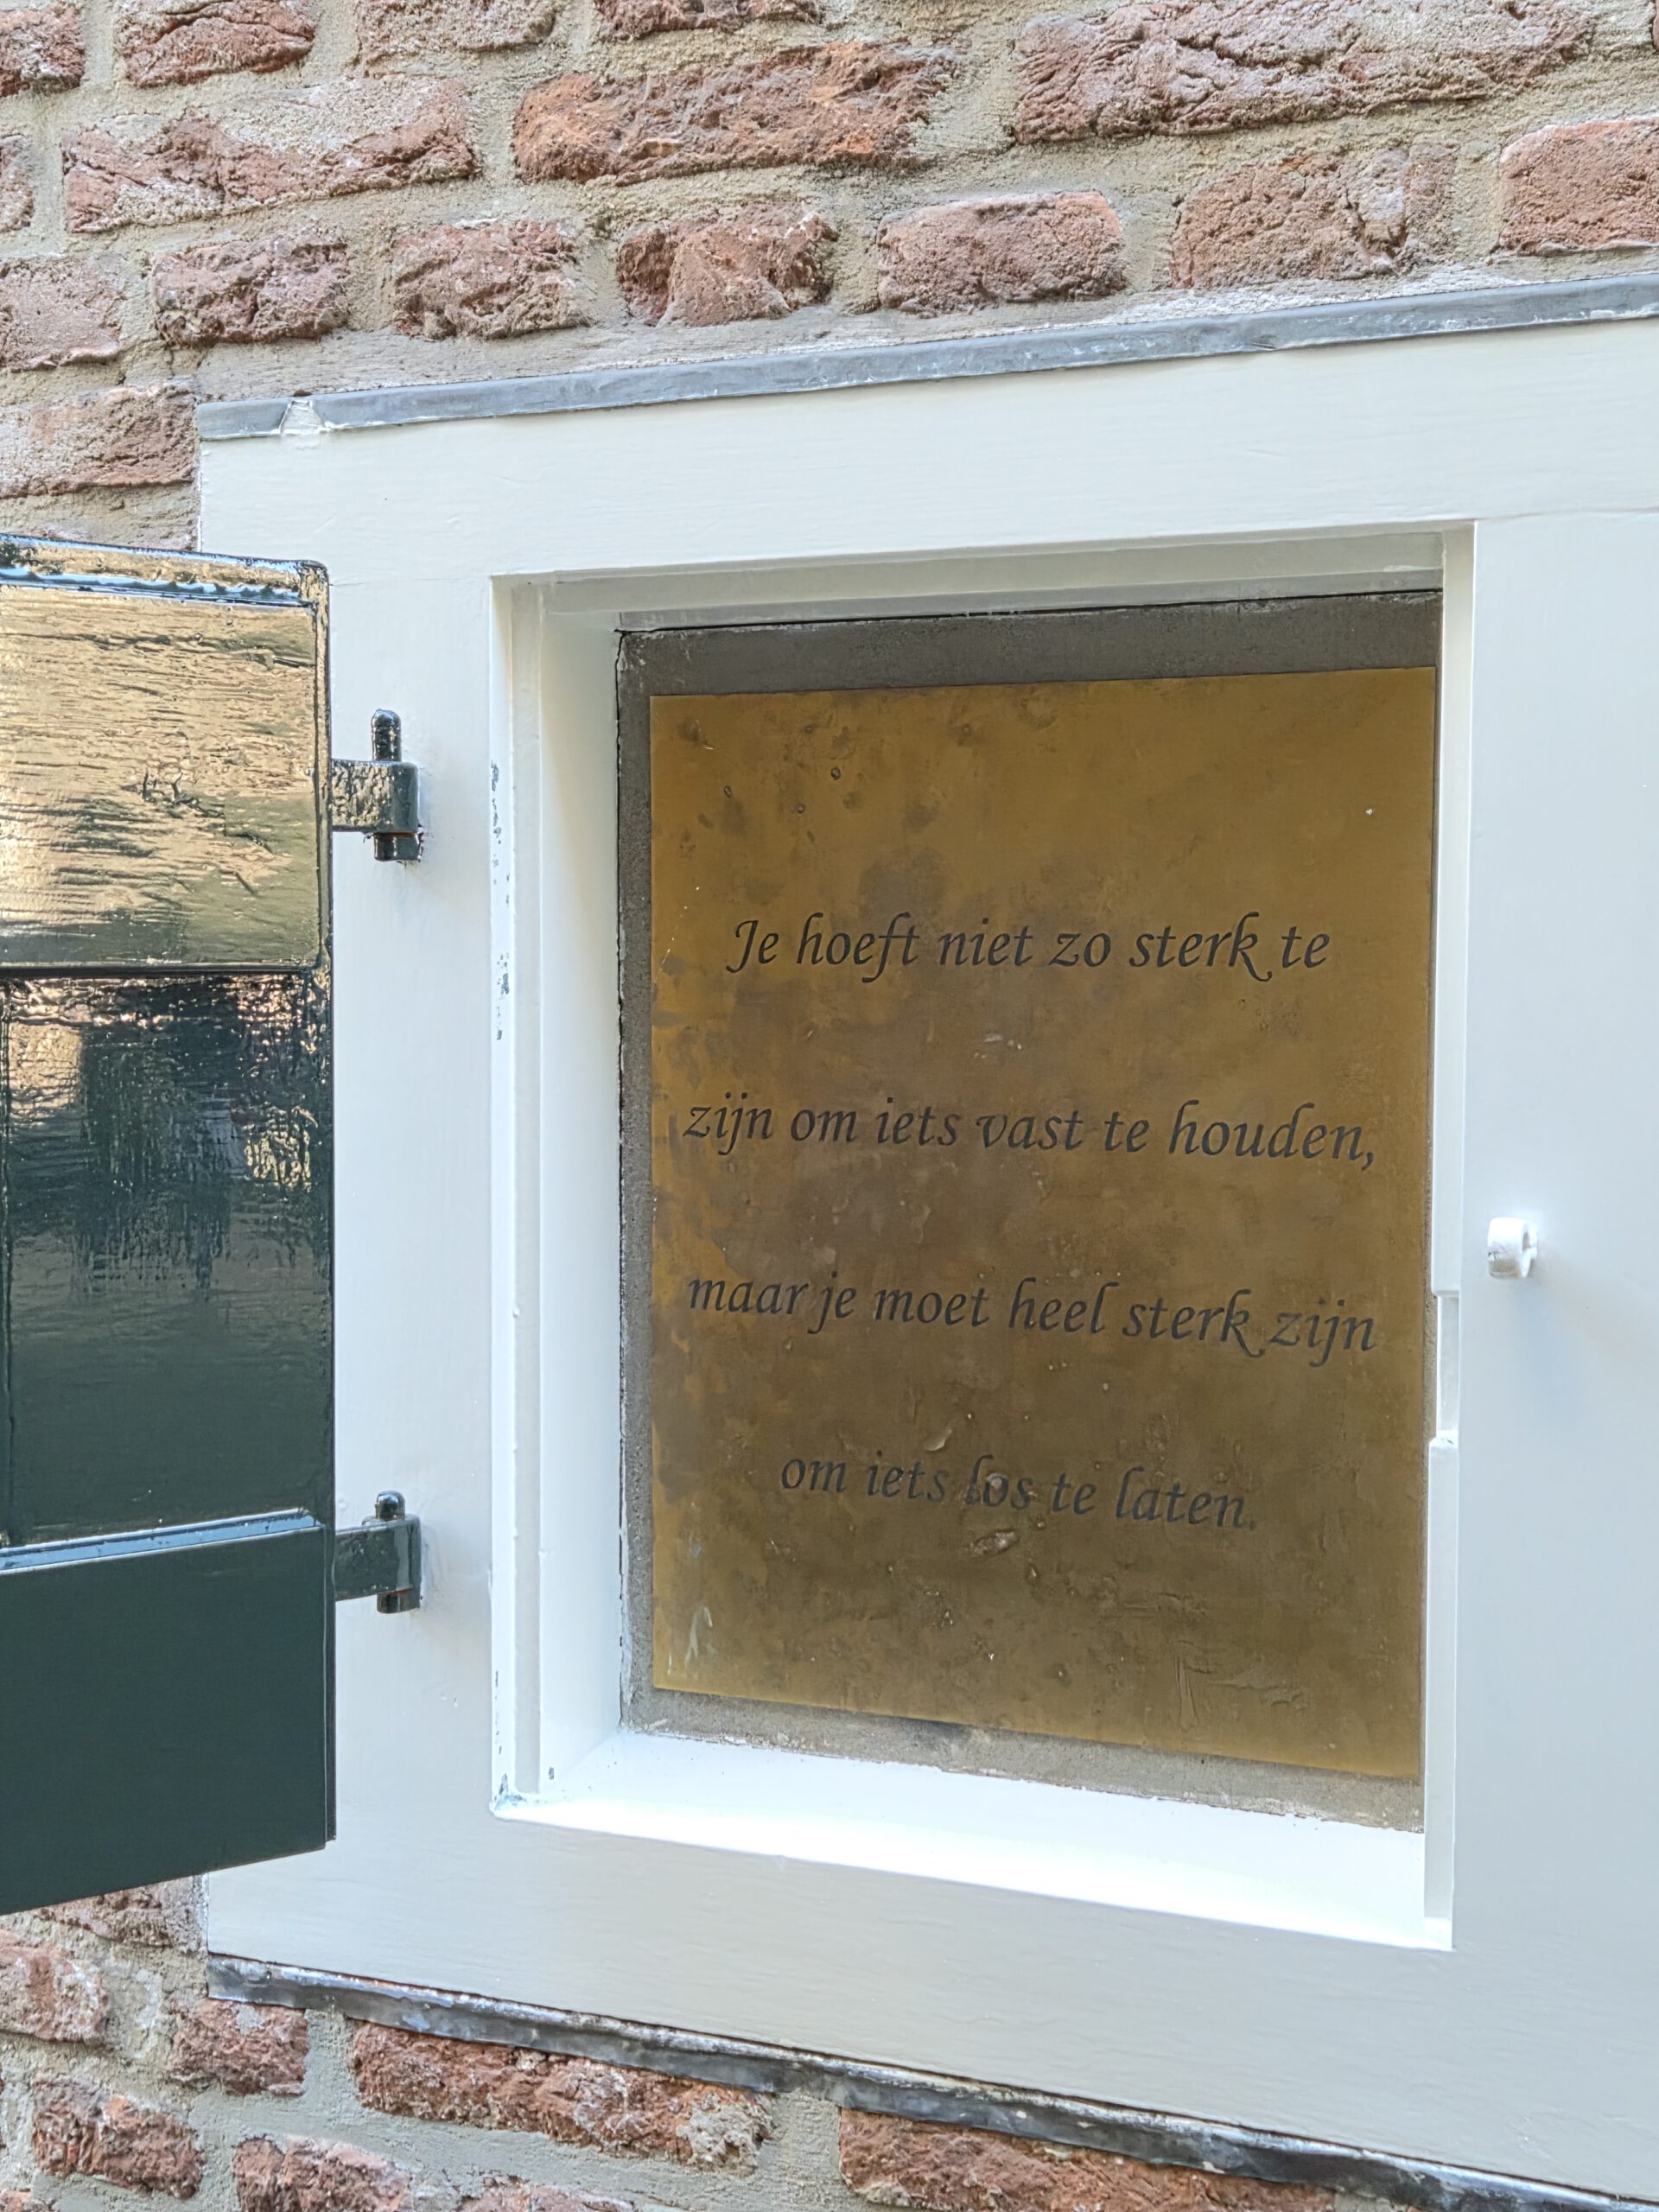 Je hoeft niet zo sterk te
zijn om iets vast te houden,
maar je moet heel sterk zijn
om iets los te laten.